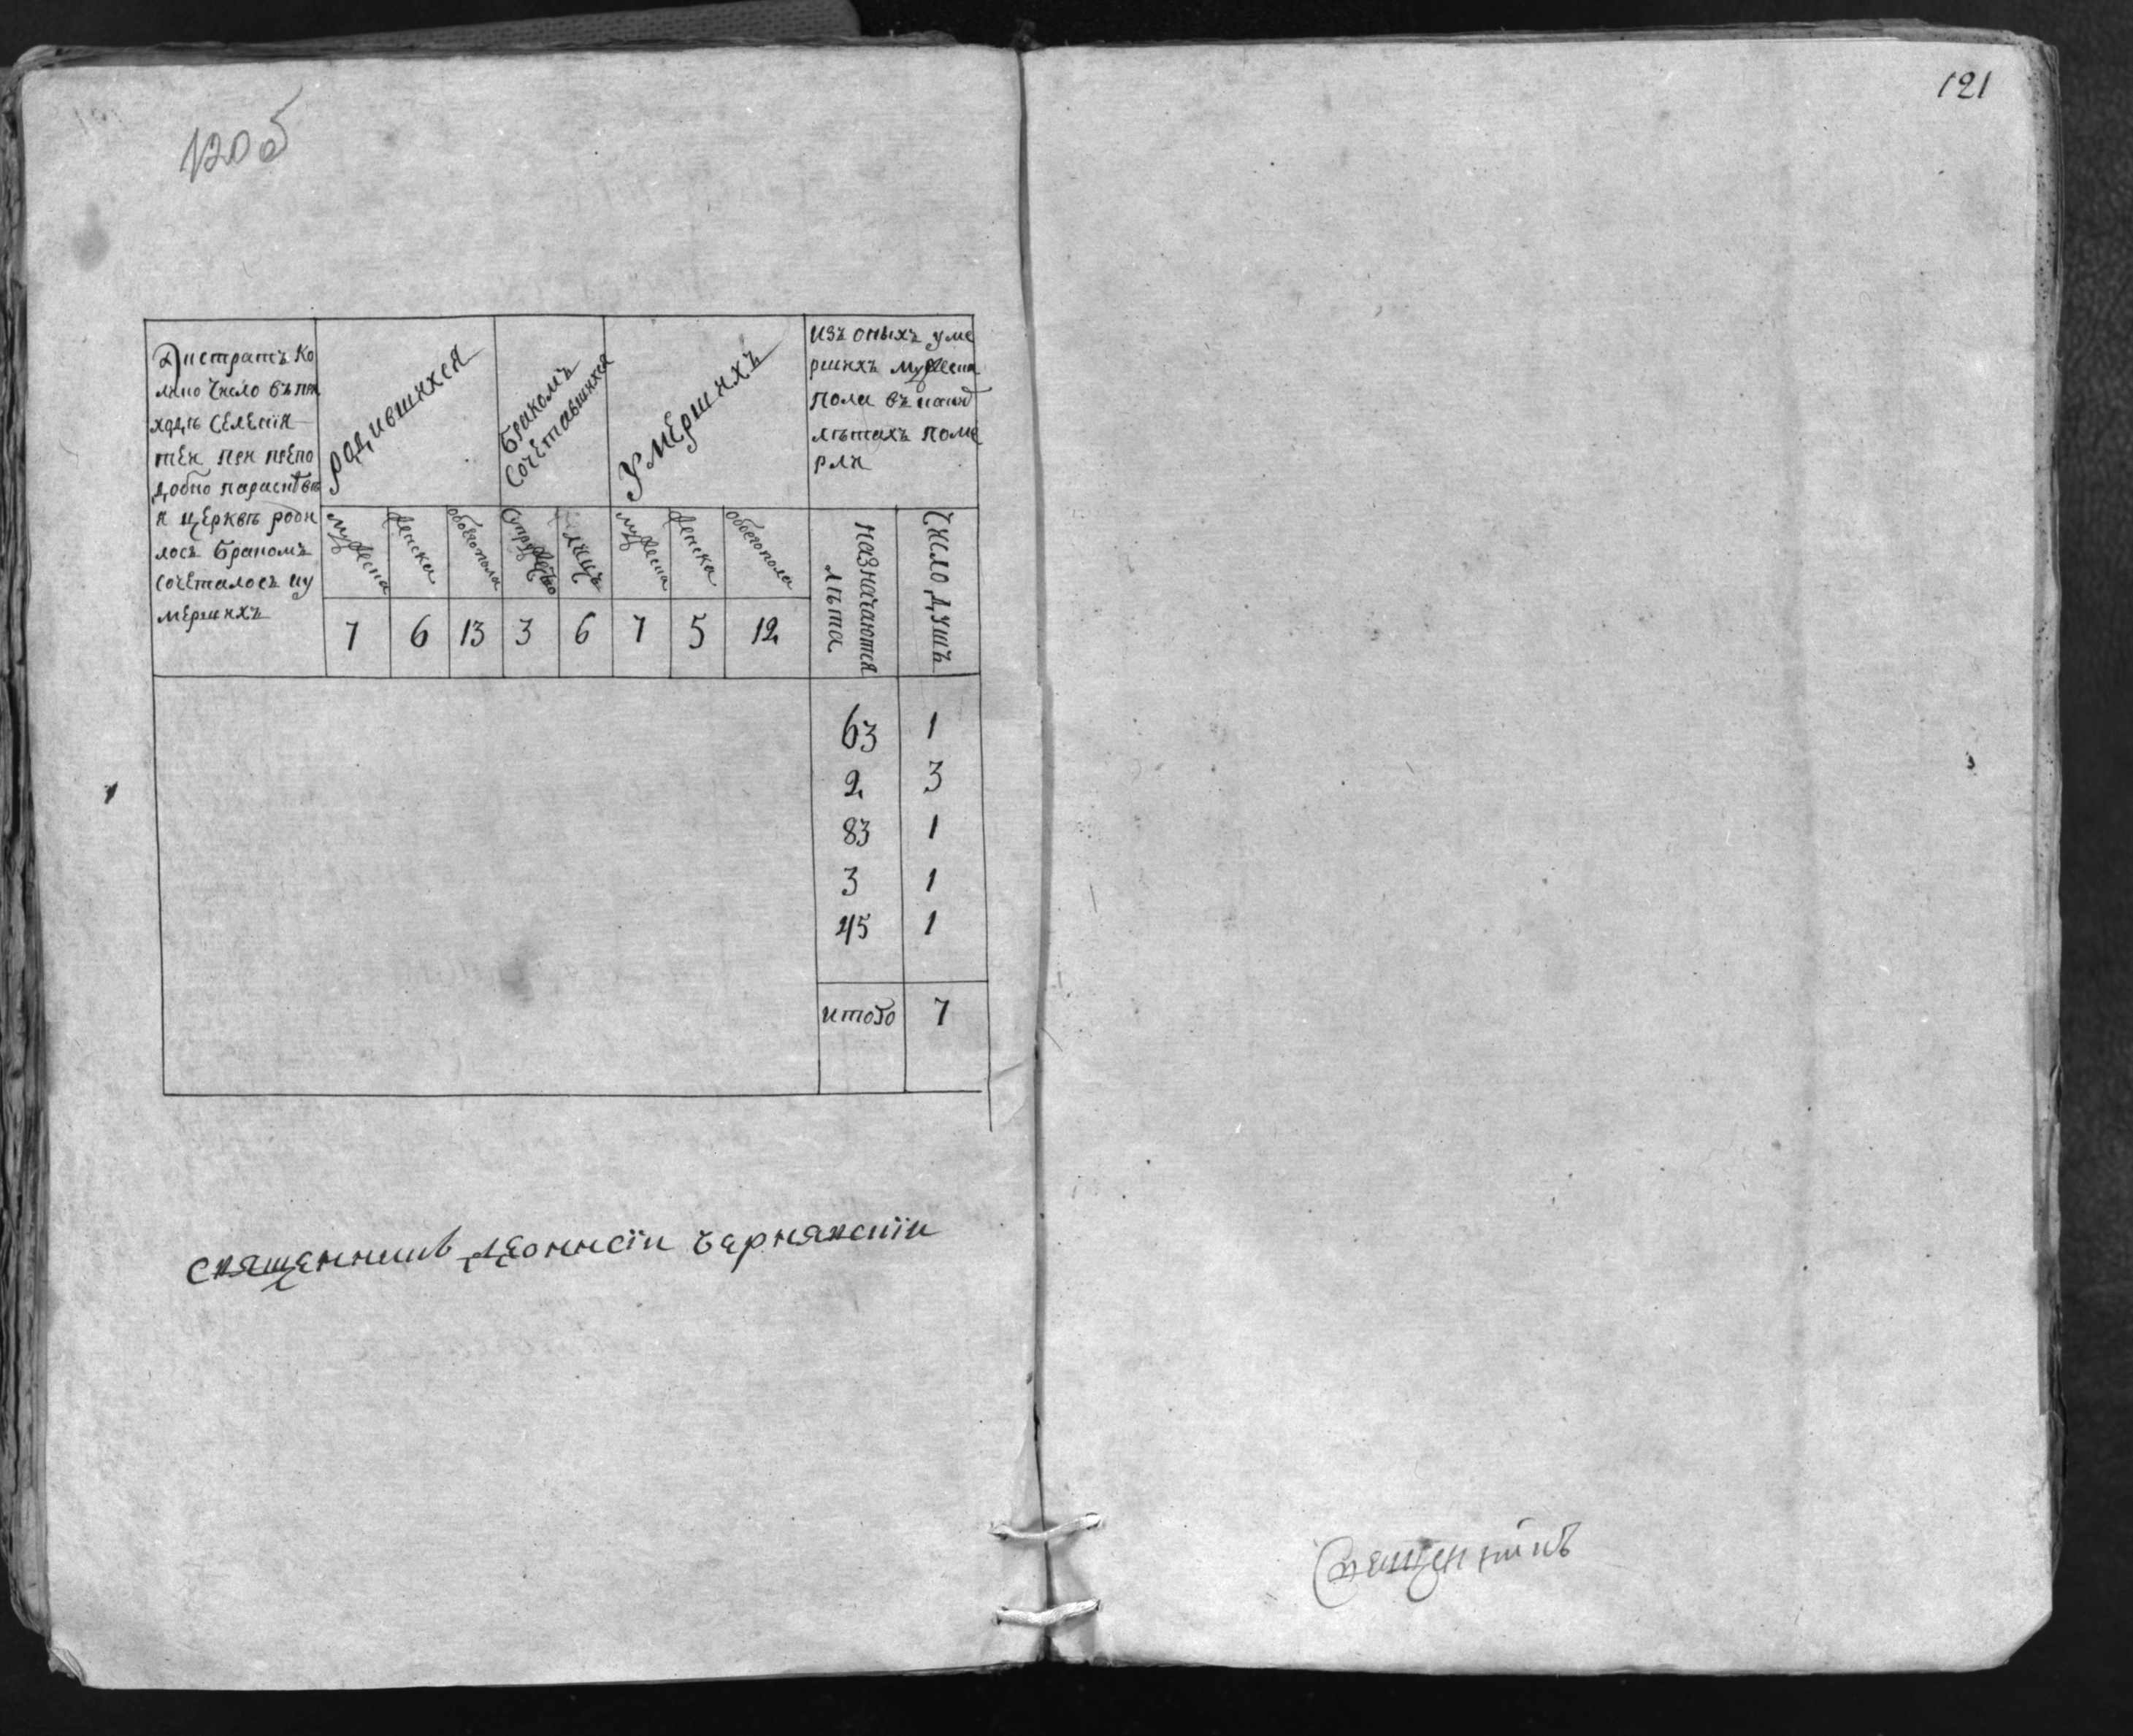 120 об
121
Дистратъ ко
лико число въ при
ходъ селенія
при препо
добно параскѣвы
и церквъ роди
лосъ бракомъ
сочеталосъ и у
мершихъ
родившихся
бракомъ
сочетавшихся
умершихъ
изъ оныхъ уме
ршихъ мужеска
пола въ какой
лѣтахъ поме
рли
мужеска
женска
обоего пола
супружество
лицъ
мужеска
женска
обоего пола
назначаются
лѣта
число душъ
7 6 13 3 6 7 5 12
63 1
2 3
83 1
3 1
45 1
итого 7
священникъ Деонисіи
священникъ